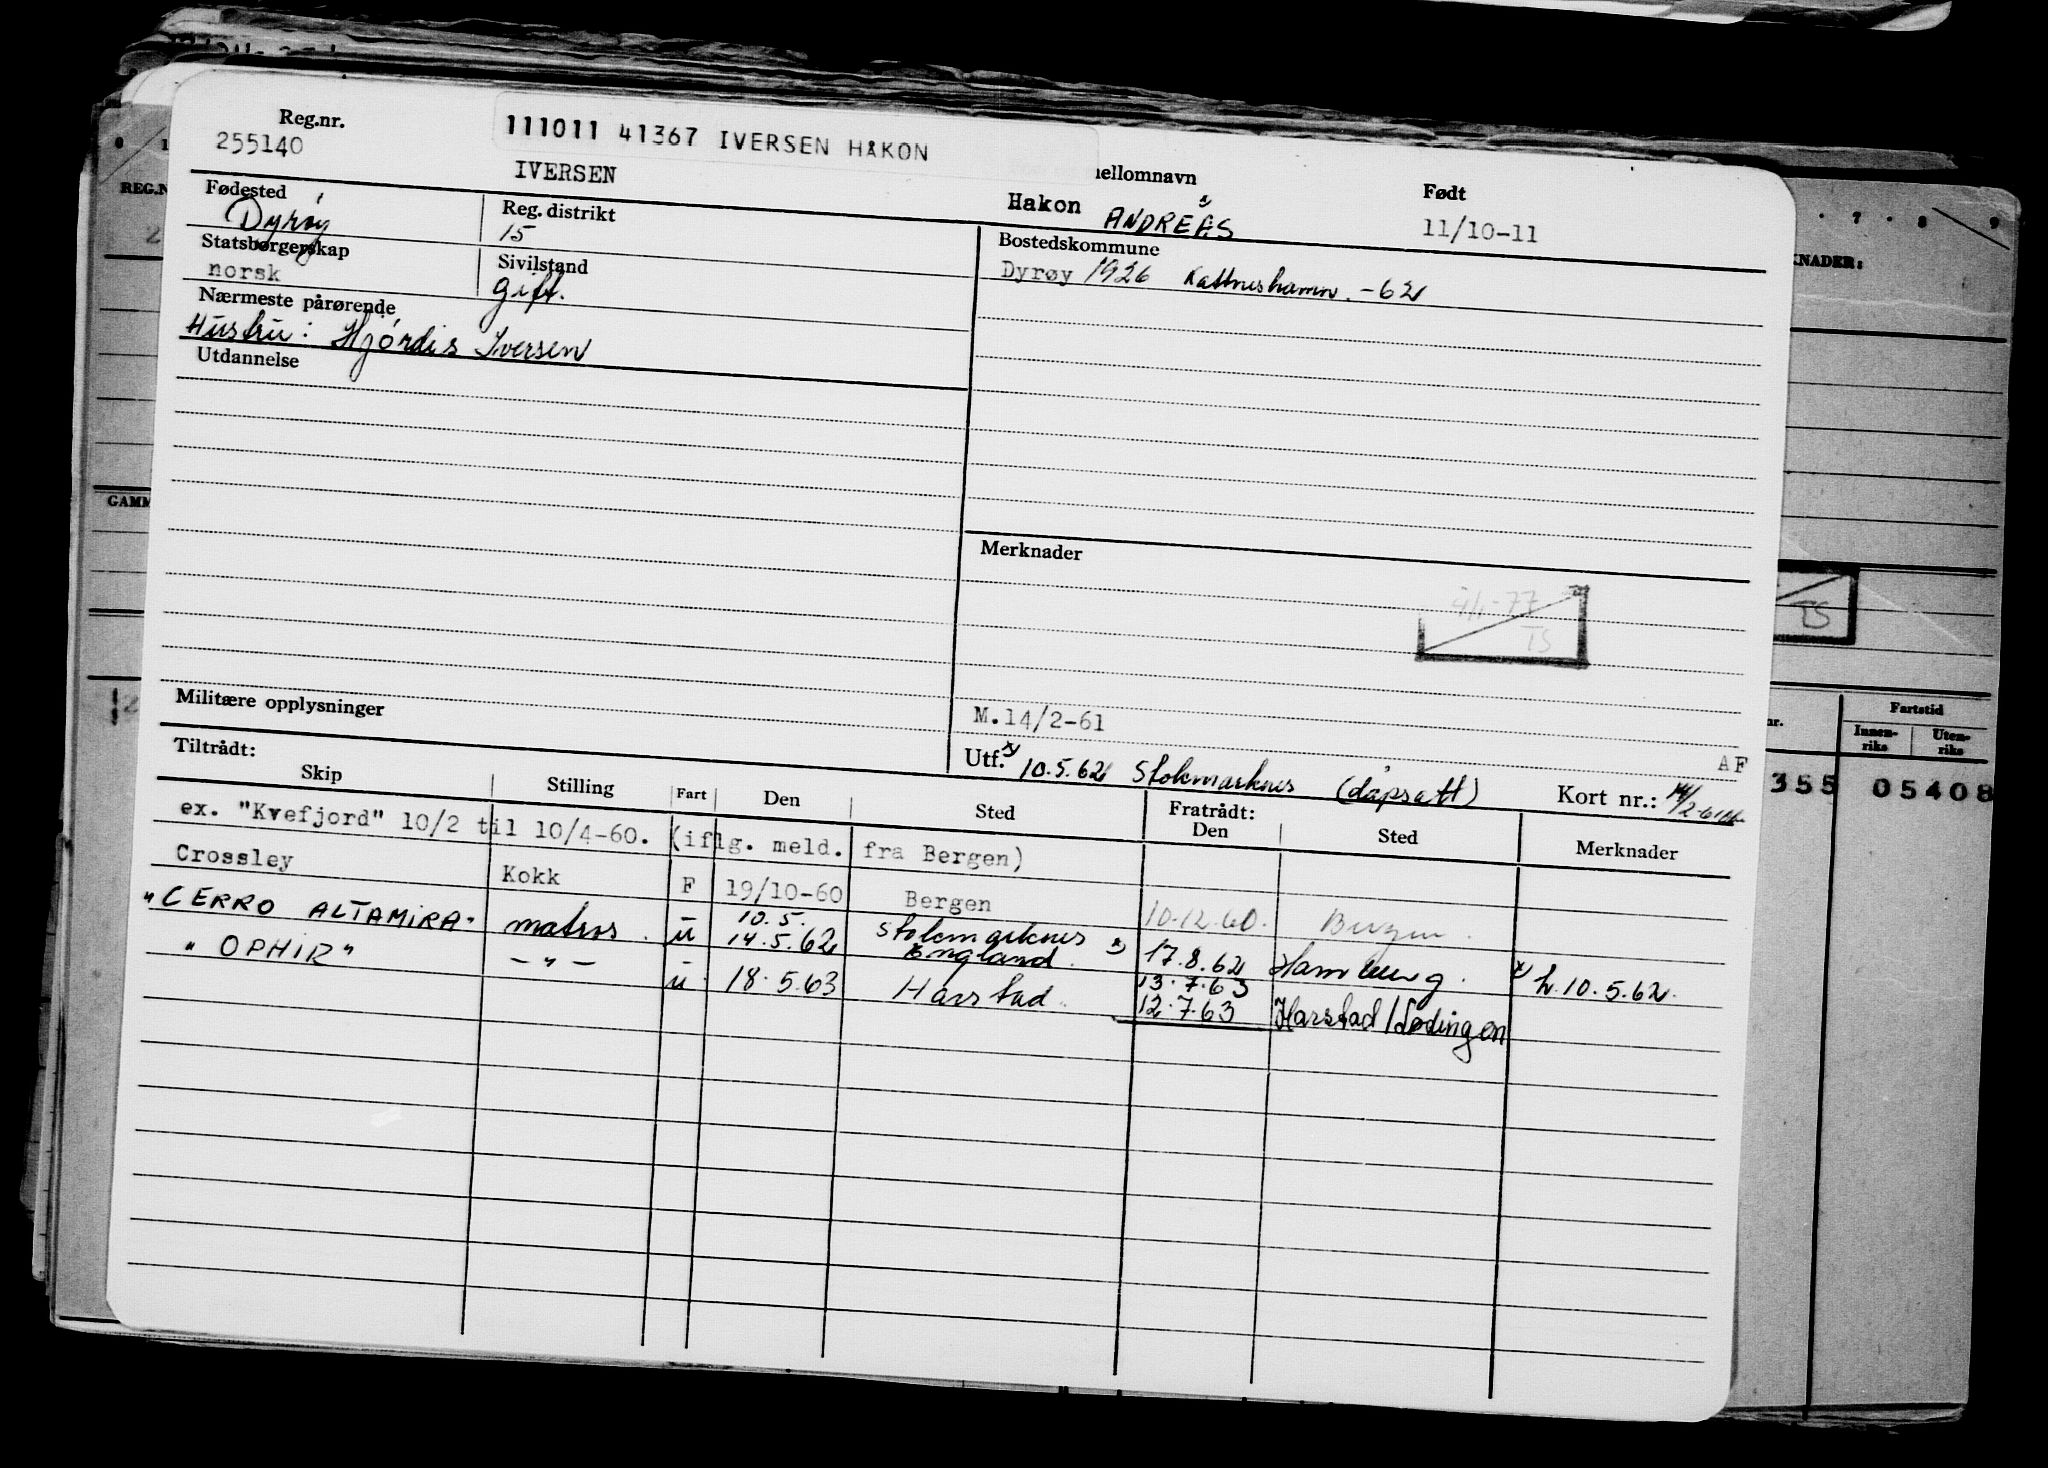 Reg.nr.
255140
111011 41367 IVERSEN HÅKON
IVERSEN
ellomnavn
Hakon ANDREAS
Født
11/10-11
Fødested
Dyrøy
Reg. distrikt
15
Statsborgerskap
norsk
Sivilstand
gift.
Nærmeste pårørende
Hustru: Hjördis Iversen
Utdannelse
Bostedskommune
Dyrøy 1926 Kattneshamn. -62
Merknader
4/1-77
TS
Militære opplysninger
M.14/2-61
Utf. x) 10.5.62 Stokmarknes (dåpsatt) AF
Kort nr.:
Tiltrådt:
Skip Stilling Fart Den Sted Fratrådt: Den Sted Merknader
ex. "Kvefjord" 10/2 til 10/4-60. (iflg. meld. fra Bergen)
Crossley Kokk F 19/10-60 Bergen 10.12.60. Bergen.
"CERRO ALTAMIRA" matros. u 10.5. 14.5.62 Stokmarknes England. x) 17.8.62 Hamburg. x) h.10.5.62.
"OPHIR" -"- u 18.5.63 Harstad. 13.7.63
12.7.63 Harstad/Lødingen
REG.N
GAMM
0 1
7 8 9
KNADER:
TS
nr.
Fartstid
Innen-
riks
Uten-
riks
355 05408